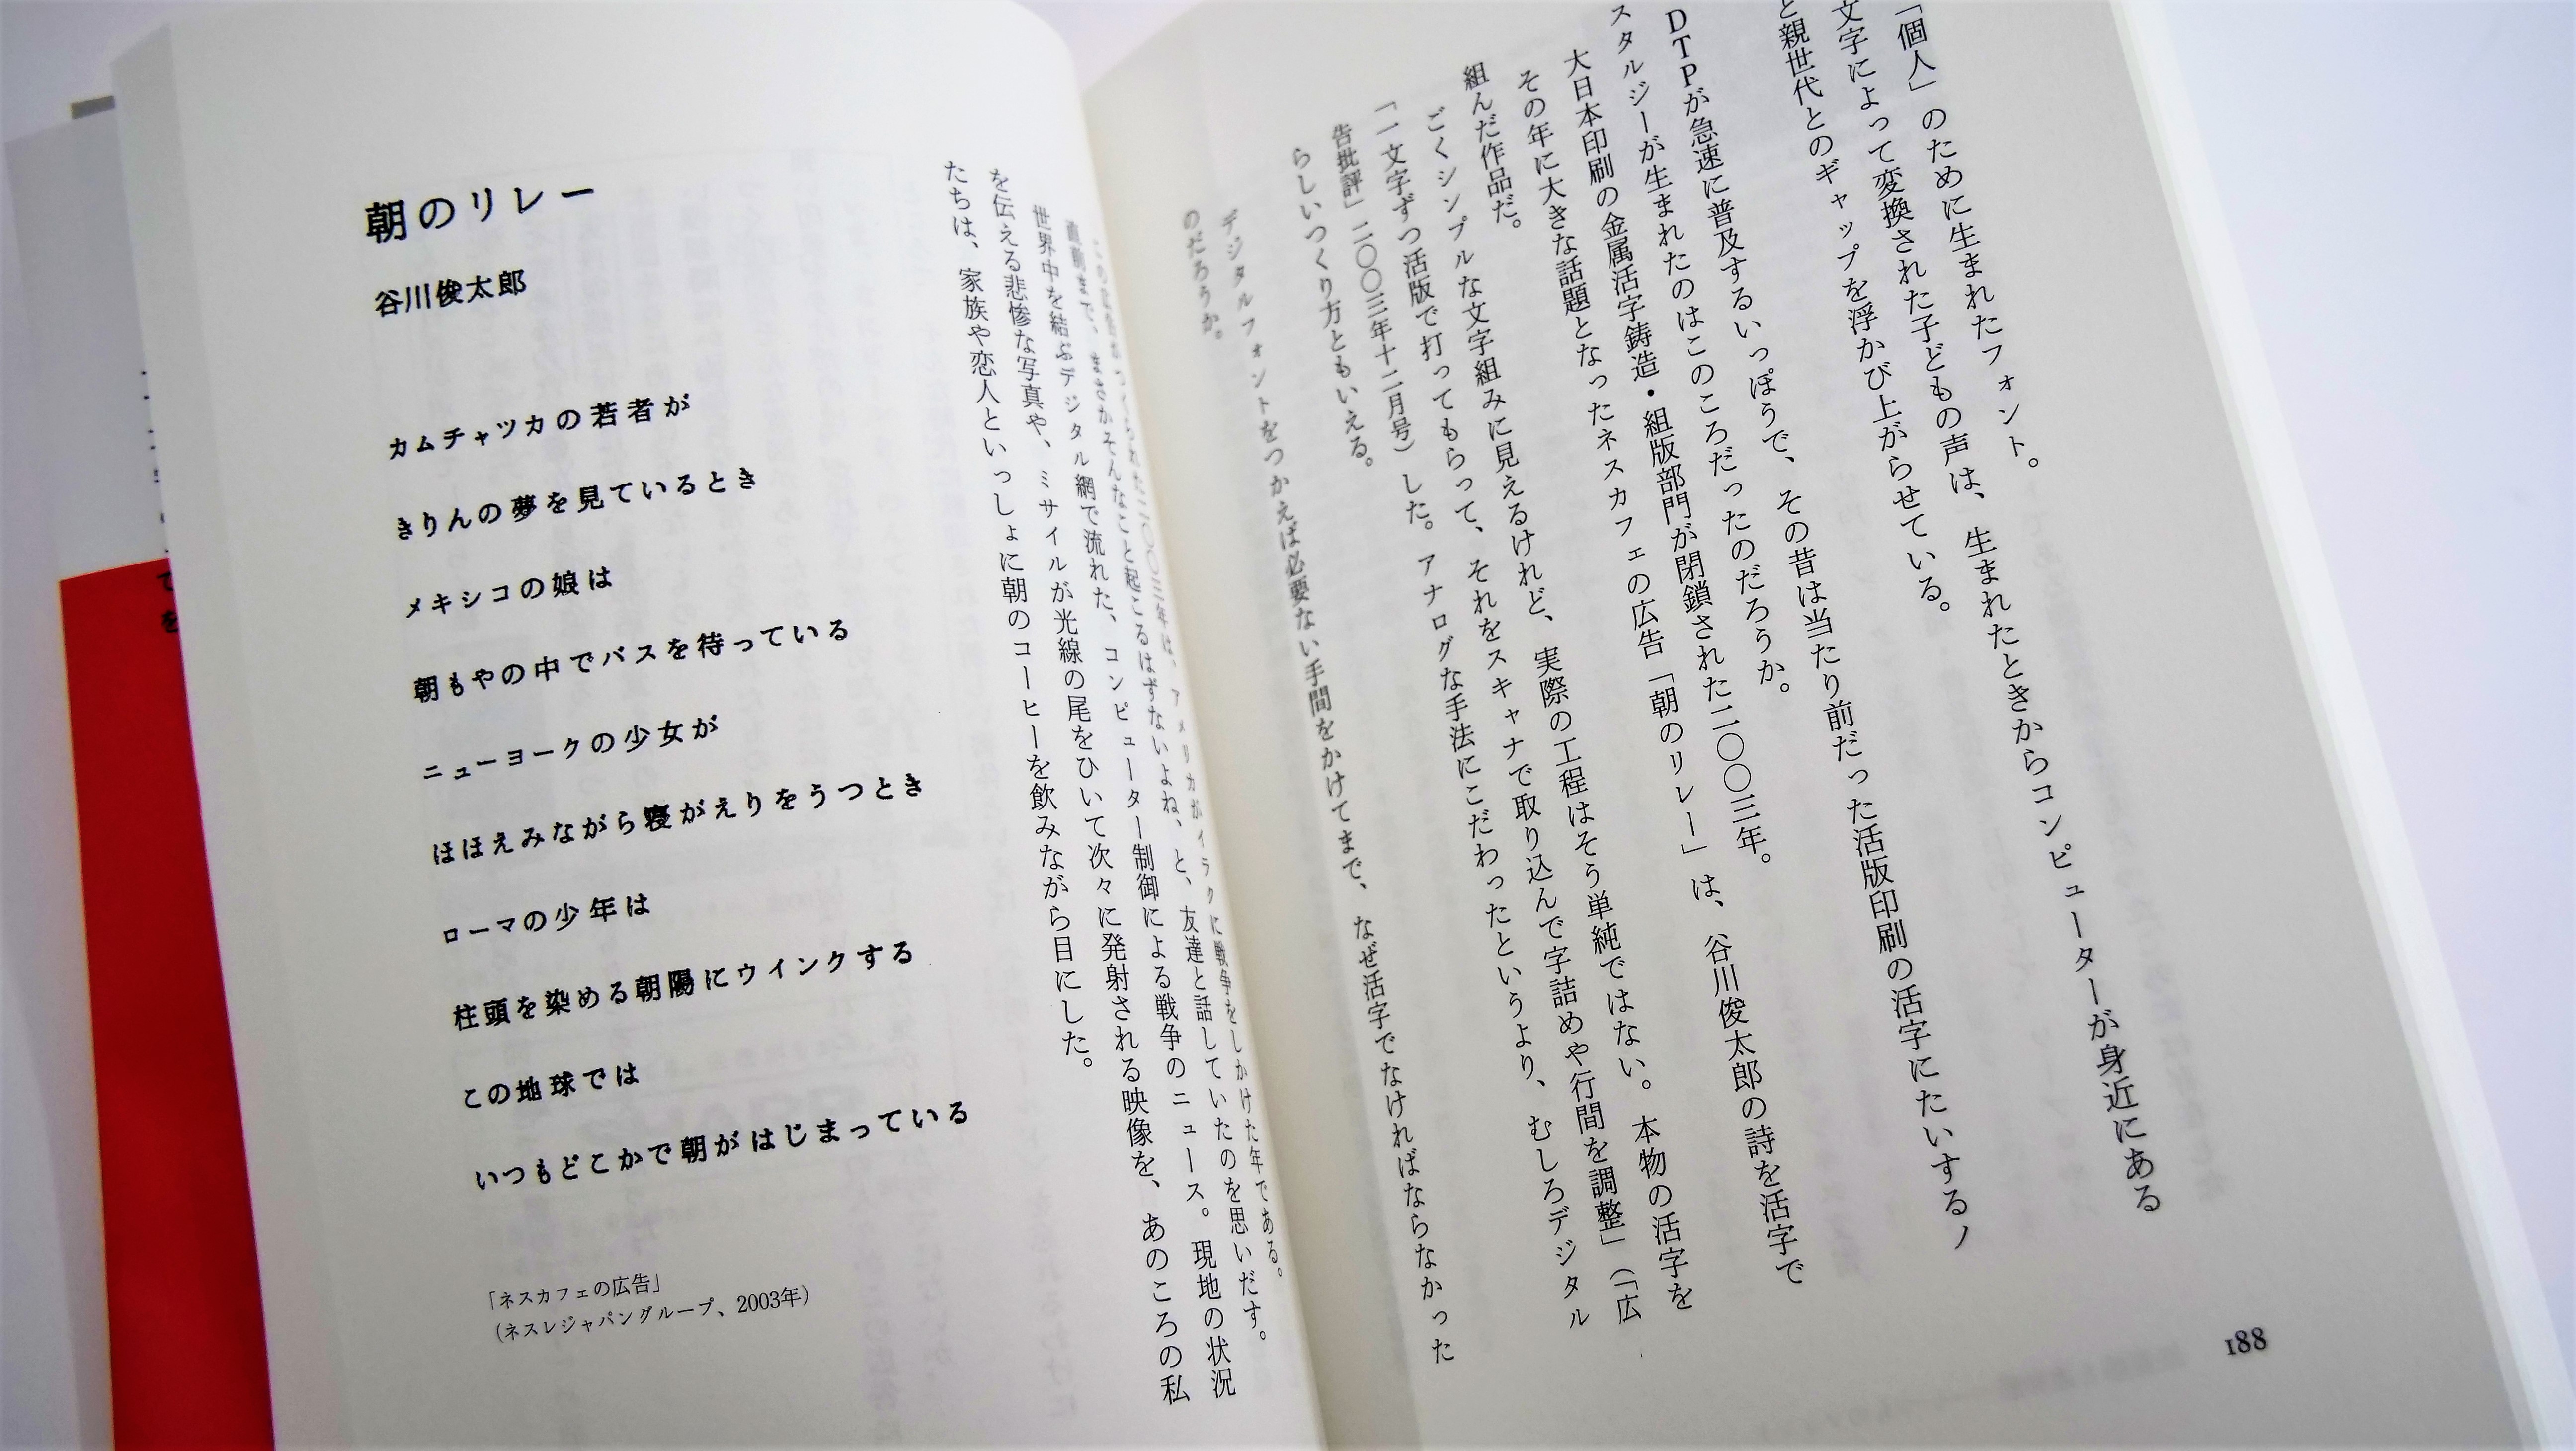 「個人」のために生まれたフォント。
文字によって変換された子どもの声は、生まれたときからコンピューターが身近にある
と親世代とのギャップを浮かび上がらせている。
DTPが急速に普及するいっぽうで、その昔は当たり前だった活版印刷の活字にたいするノ
スタルジーが生まれたのはこのころだったのだろうか。
大日本印刷の金属活字鋳造・組版部門が閉鎖された二〇〇三年。
その年に大きな話題となったネスカフェの広告「朝のリレー」は、谷川俊太郎の詩を活字で
組んだ作品だ。
ごくシンプルな文字組みに見えるけれど、実際の工程はそう単純ではない。本物の活字を
「一文字ずつ活版で打ってもらって、それをスキャナで取り込んで字詰めや行間を調整」（「広
告批評」二〇〇三年十二月号）した。アナログな手法にこだわったというより、むしろデジタル
らしいつくり方ともいえる。
デジタルフォントをつかえば必要ない手間をかけてまで、なぜ活字でなければならなかった
のだろうか。
188
二〇〇三年は、アメリカがイラクに戦争をしかけた年である。
直前まで、まさかそんなこと起こるはずないよね、と、友達と話していたのを思いだす。
世界中を結ぶデジタル網で流れた、コンピューター制御による戦争のニュース。現地の状況
を伝える悲惨な写真や、ミサイルが光線の尾をひいて次々に発射される映像を、あのころの私
たちは、家族や恋人といっしょに朝のコーヒーを飲みながら目にした。
朝のリレー
谷川俊太郎
カムチャツカの若者が
きりんの夢を見ているとき
メキシコの娘は
朝もやの中でバスを待っている
ニューヨークの少女が
ほほえみながら寝がえりをうつとき
ローマの少年は
柱頭を染める朝陽にウインクする
この地球では
いつもどこかで朝がはじまっている
「ネスカフェの広告」
（ネスレジャパングループ、2003年）